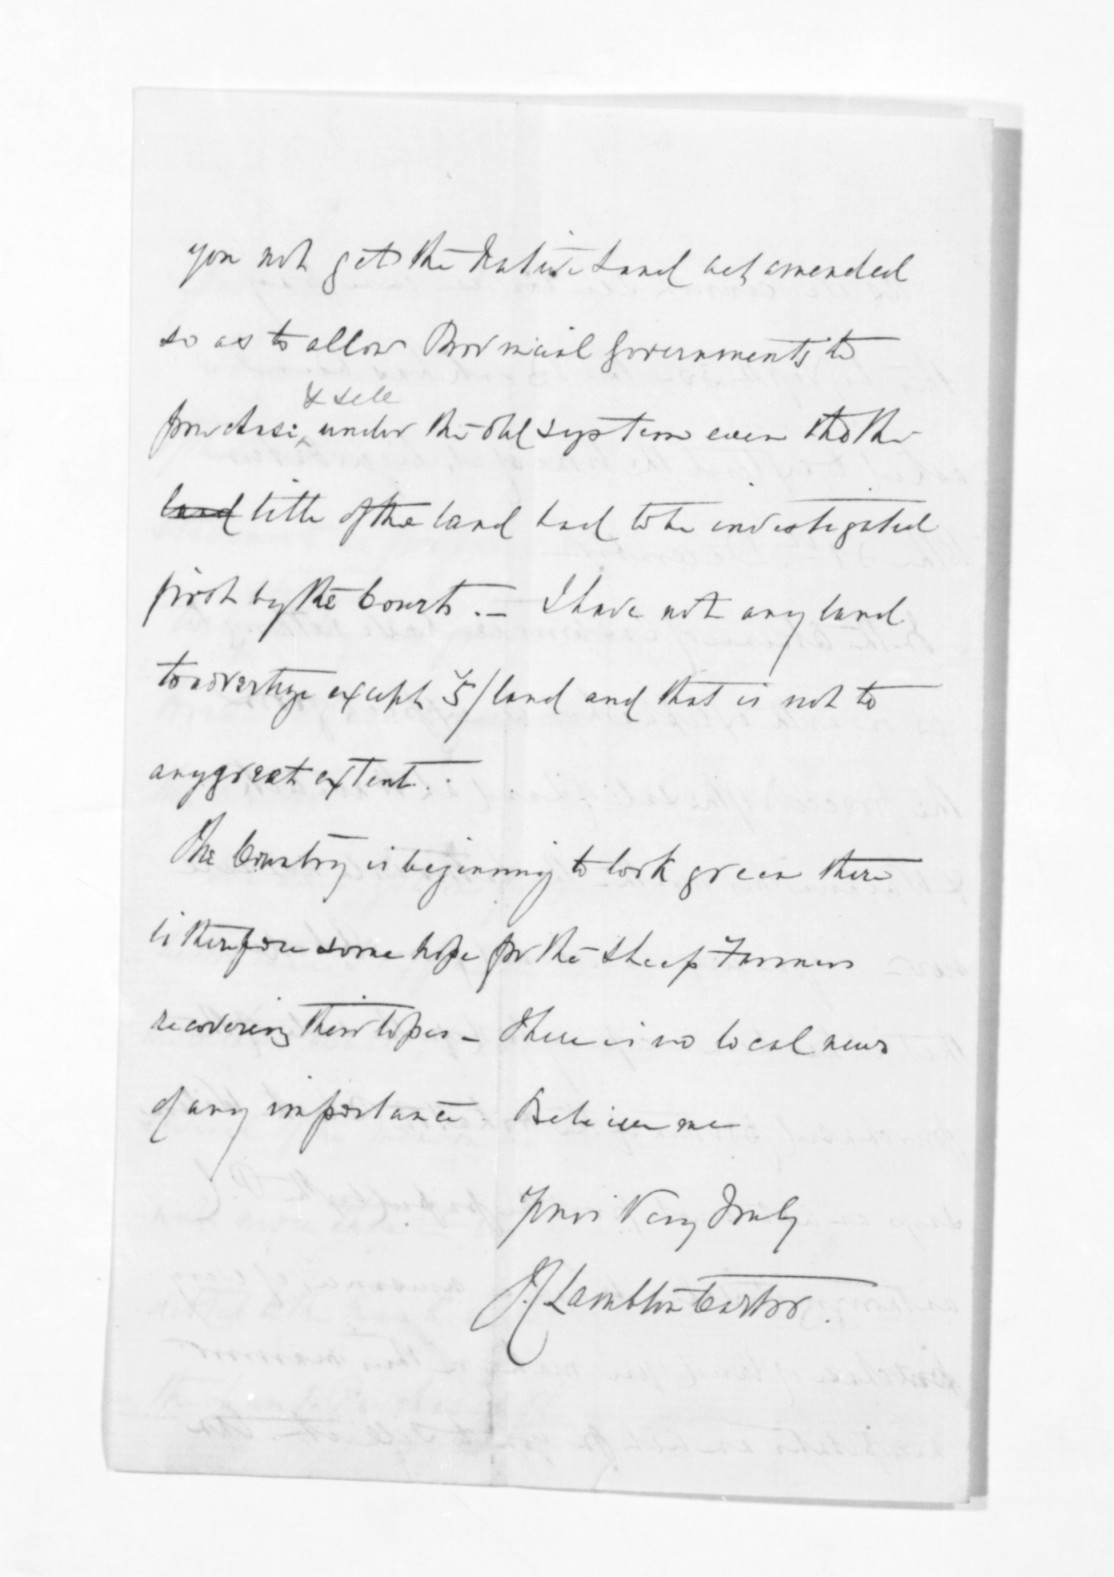 you not get the Native Land act amended
so as to allow Provincial Governments to
& sell
purchase ^ under the old system even tho the
land title of the land had to be investigated
first by the Courts. — I have not any land
to advertize except 5/ land and that is not to
any great extent.
The Country is beginning to look green there
is therefore some hope for the Sheep Farmers
recovering their losses – There is no local news
of any importance. Believe me
Yours Very Truly
J. Lambton Carter.